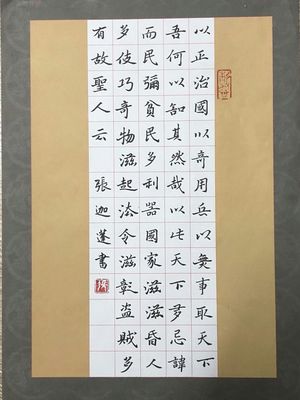 以正治國以奇用兵以無事取天下
吾何以知其然哉以此天下多忌諱
而民彌貧民多利器國家滋滋昏人
多伎巧奇物滋起法令滋彰盜賊多
有故聖人云 張迦蓬書